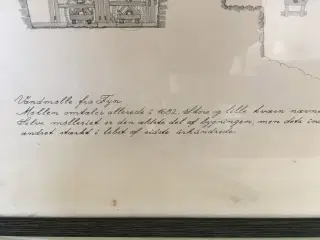 Vandmølle fra Fyn
Møllen omtales allerede i 1682. Store og lille kværn nævne
Selve mølleriet er den ældste del af bygningen, men dets ind
ændret stærkt i løbet af sidste århundrede.